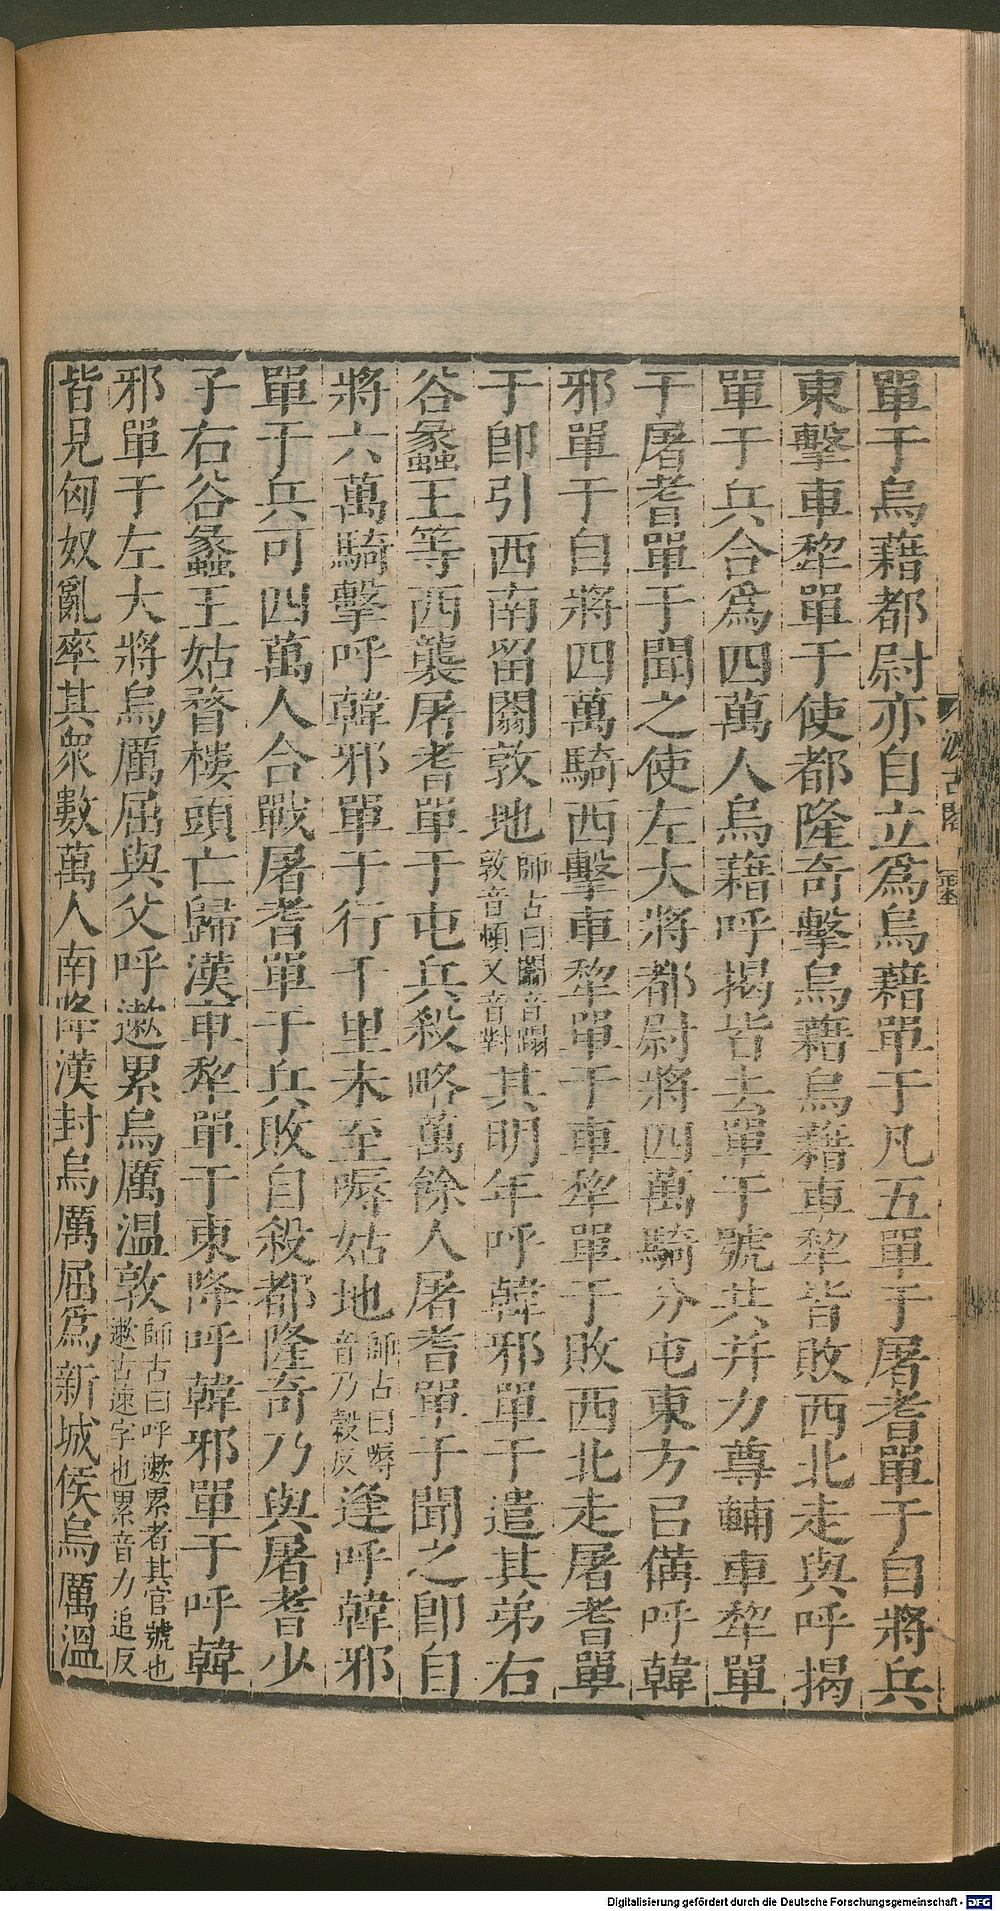 單于烏藉都尉亦自立爲烏藉單于凡五單于屠耆單于自將兵
東擊車犂單于使都隆奇擊烏藉烏藉車犂皆敗西北走與呼揭
單于兵合爲四萬人烏藉呼揭皆去單于號共并力尊輔車犂單
于屠耆單于聞之使左大將都尉將四萬騎分屯東方㠯備呼韓
邪單于自將四萬騎西擊車犂單于車犂單于敗西北走屠耆單
于卽引西南留闟敦地師古曰闟音蹋敦音頓又音對其明年呼韓邪單于遣其弟右
谷蠡王等西襲屠耆單于屯兵殺略萬餘人屠耆單于聞之卽自
將六萬騎擊呼韓邪單于行千里未至嗕姑地師古曰嗕音乃穀反逢呼韓邪
單于兵可四萬人合戰屠耆單于兵敗自殺都隆奇乃與屠耆少
子右谷蠡王姑瞀樓頭亡歸漢車犂單于東降呼韓邪單于呼韓
邪單于左大將烏厲屈與父呼遬累烏厲温敦師古曰呼遬累者其官號也遬古速字也累音力追反
皆見匈奴亂率其衆數萬人南降漢封烏厲屈爲新城侯烏厲溫
汲古閣
Digitalisierung gefördert durch die Deutsche Forschungsgemeinschaft - DFG